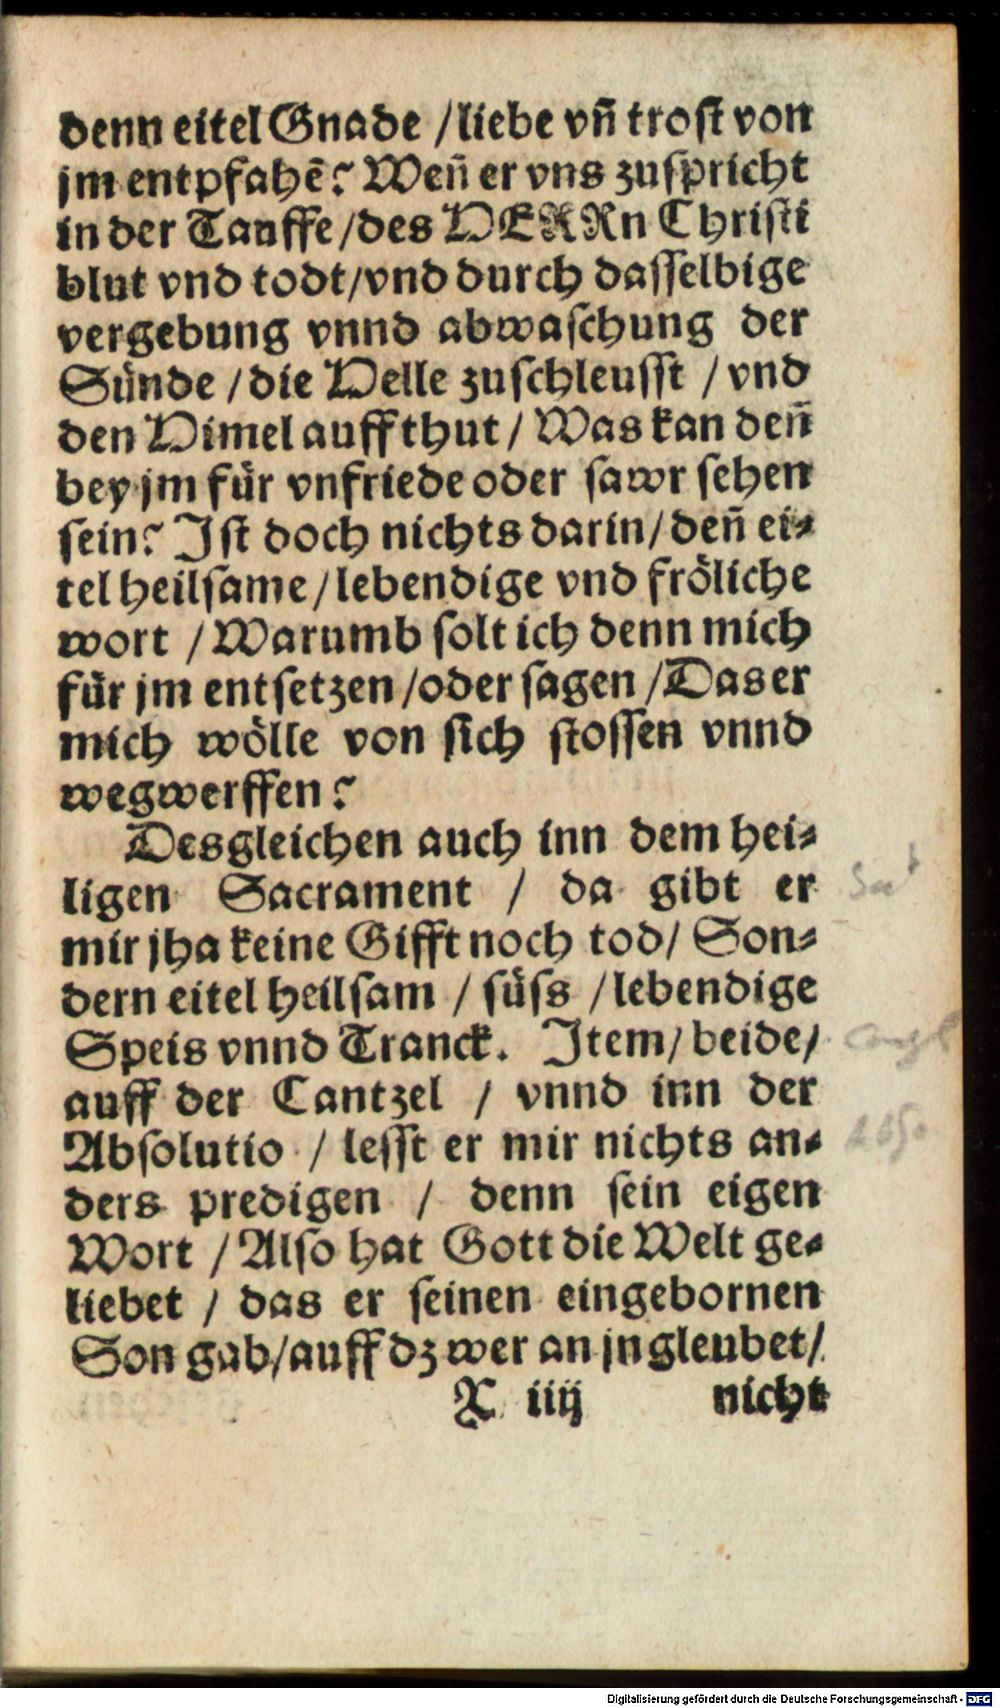 denn eitel Gnade /liebe vñ trost von
jm entpfahē? Weñ er vns zuspricht
in der Tauffe/des HERRn Christi
blut vnd todt/vnd durch dasselbige
vergebung vnnd abwaschung der
Sünde /die Helle zuschleusst /vnd
den Himel auffthut/ Was kan deñ
bey jm für vnfriede oder sawr sehen
sein? Ist doch nichts darin/deñ ei⸗
tel heilsame/lebendige vnd fröliche
wort /Warumb solt ich denn mich
für jm entsetzen/oder sagen/Das er
mich wölle von sich stossen vnnd
wegwerffen?
Desgleichen auch inn dem hei⸗
ligen Sacrament / da gibt er
mir jha keine Gifft noch tod/ Son⸗
dern eitel heilsam /süss /lebendige
Speis vnnd Tranck. Item/beide/
auff der Cantzel / vnnd inn der
Absolutio / lesst er mir nichts an⸗
ders predigen / denn sein eigen
Wort /Also hat Gott die Welt ge⸗
liebet / das er seinen eingebornen
Son gab/auff dz wer an jn gleubet/
X iiij nicht
Digitalisierung gefördert durch die Deutsche Forschungsgemeinschaft - DFG